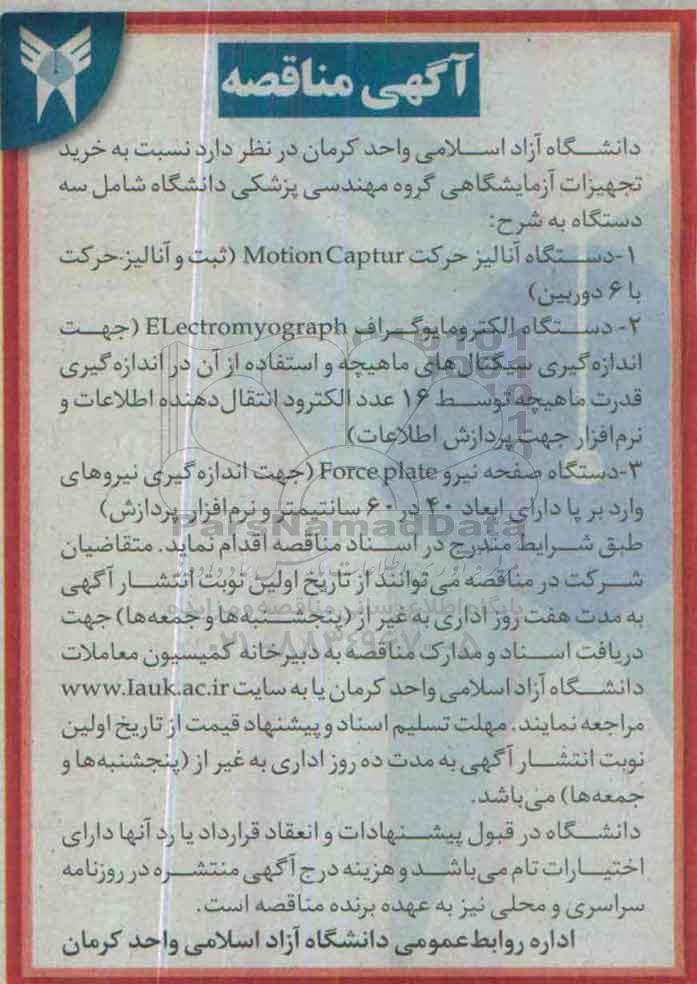 آگهی مناقصه
دانشگاه آزاد اسلامی واحد کرمان در نظر دارد نسبت به خرید
تجهیزات آزمایشگاهی گروه مهندسی پزشکی دانشگاه شامل سه
دستگاه به شرح:
۱-دستگاه آنالیز حرکت Motion Captur (ثبت و آنالیز حرکت
با ۶ دوربین)
۲- دستگاه الکترومایوگراف ELectromyograph (جهت
اندازه‌گیری سیگنال‌های ماهیچه و استفاده از آن در اندازه‌گیری
قدرت ماهیچه توسط ۱۶ عدد الکترود انتقال‌دهنده اطلاعات و
نرم‌افزار جهت پردازش اطلاعات)
۳-دستگاه صفحه نیرو Force plate (جهت اندازه گیری نیروهای
وارد بر پا دارای ابعاد ۴۰ در ۶۰ سانتیمتر و نرم‌افزار پردازش)
ParsNamadData
طبق شرایط مندرج در اسناد مناقصه اقدام نماید. متقاضیان
شرکت در مناقصه می‌توانند از تاریخ اولین نوبت انتشار آگهی
پایگاه اطلاع رسانی مناقصه و مزایده
به مدت هفت روز اداری به غیر از (پنجشنبه‌ها و جمعه‌ها) جهت
دریافت اسناد و مدارک مناقصه به دبیرخانه کمیسیون معاملات
دانشگاه آزاد اسلامی واحد کرمان یا به سایت www.Iauk.ac.ir
مراجعه نمایند. مهلت تسلیم اسناد و پیشنهاد قیمت از تاریخ اولین
نوبت انتشار آگهی به مدت ده روز اداری به غیر از (پنجشنبه‌ها و
جمعه‌ها) می‌باشد.
دانشگاه در قبول پیشنهادات و انعقاد قرارداد یا رد آنها دارای
اختیارات تام می‌باشد و هزینه درج آگهی منتشره در روزنامه
سراسری و محلی نیز به عهده برنده مناقصه است.
اداره روابط‌عمومی دانشگاه آزاد اسلامی واحد کرمان